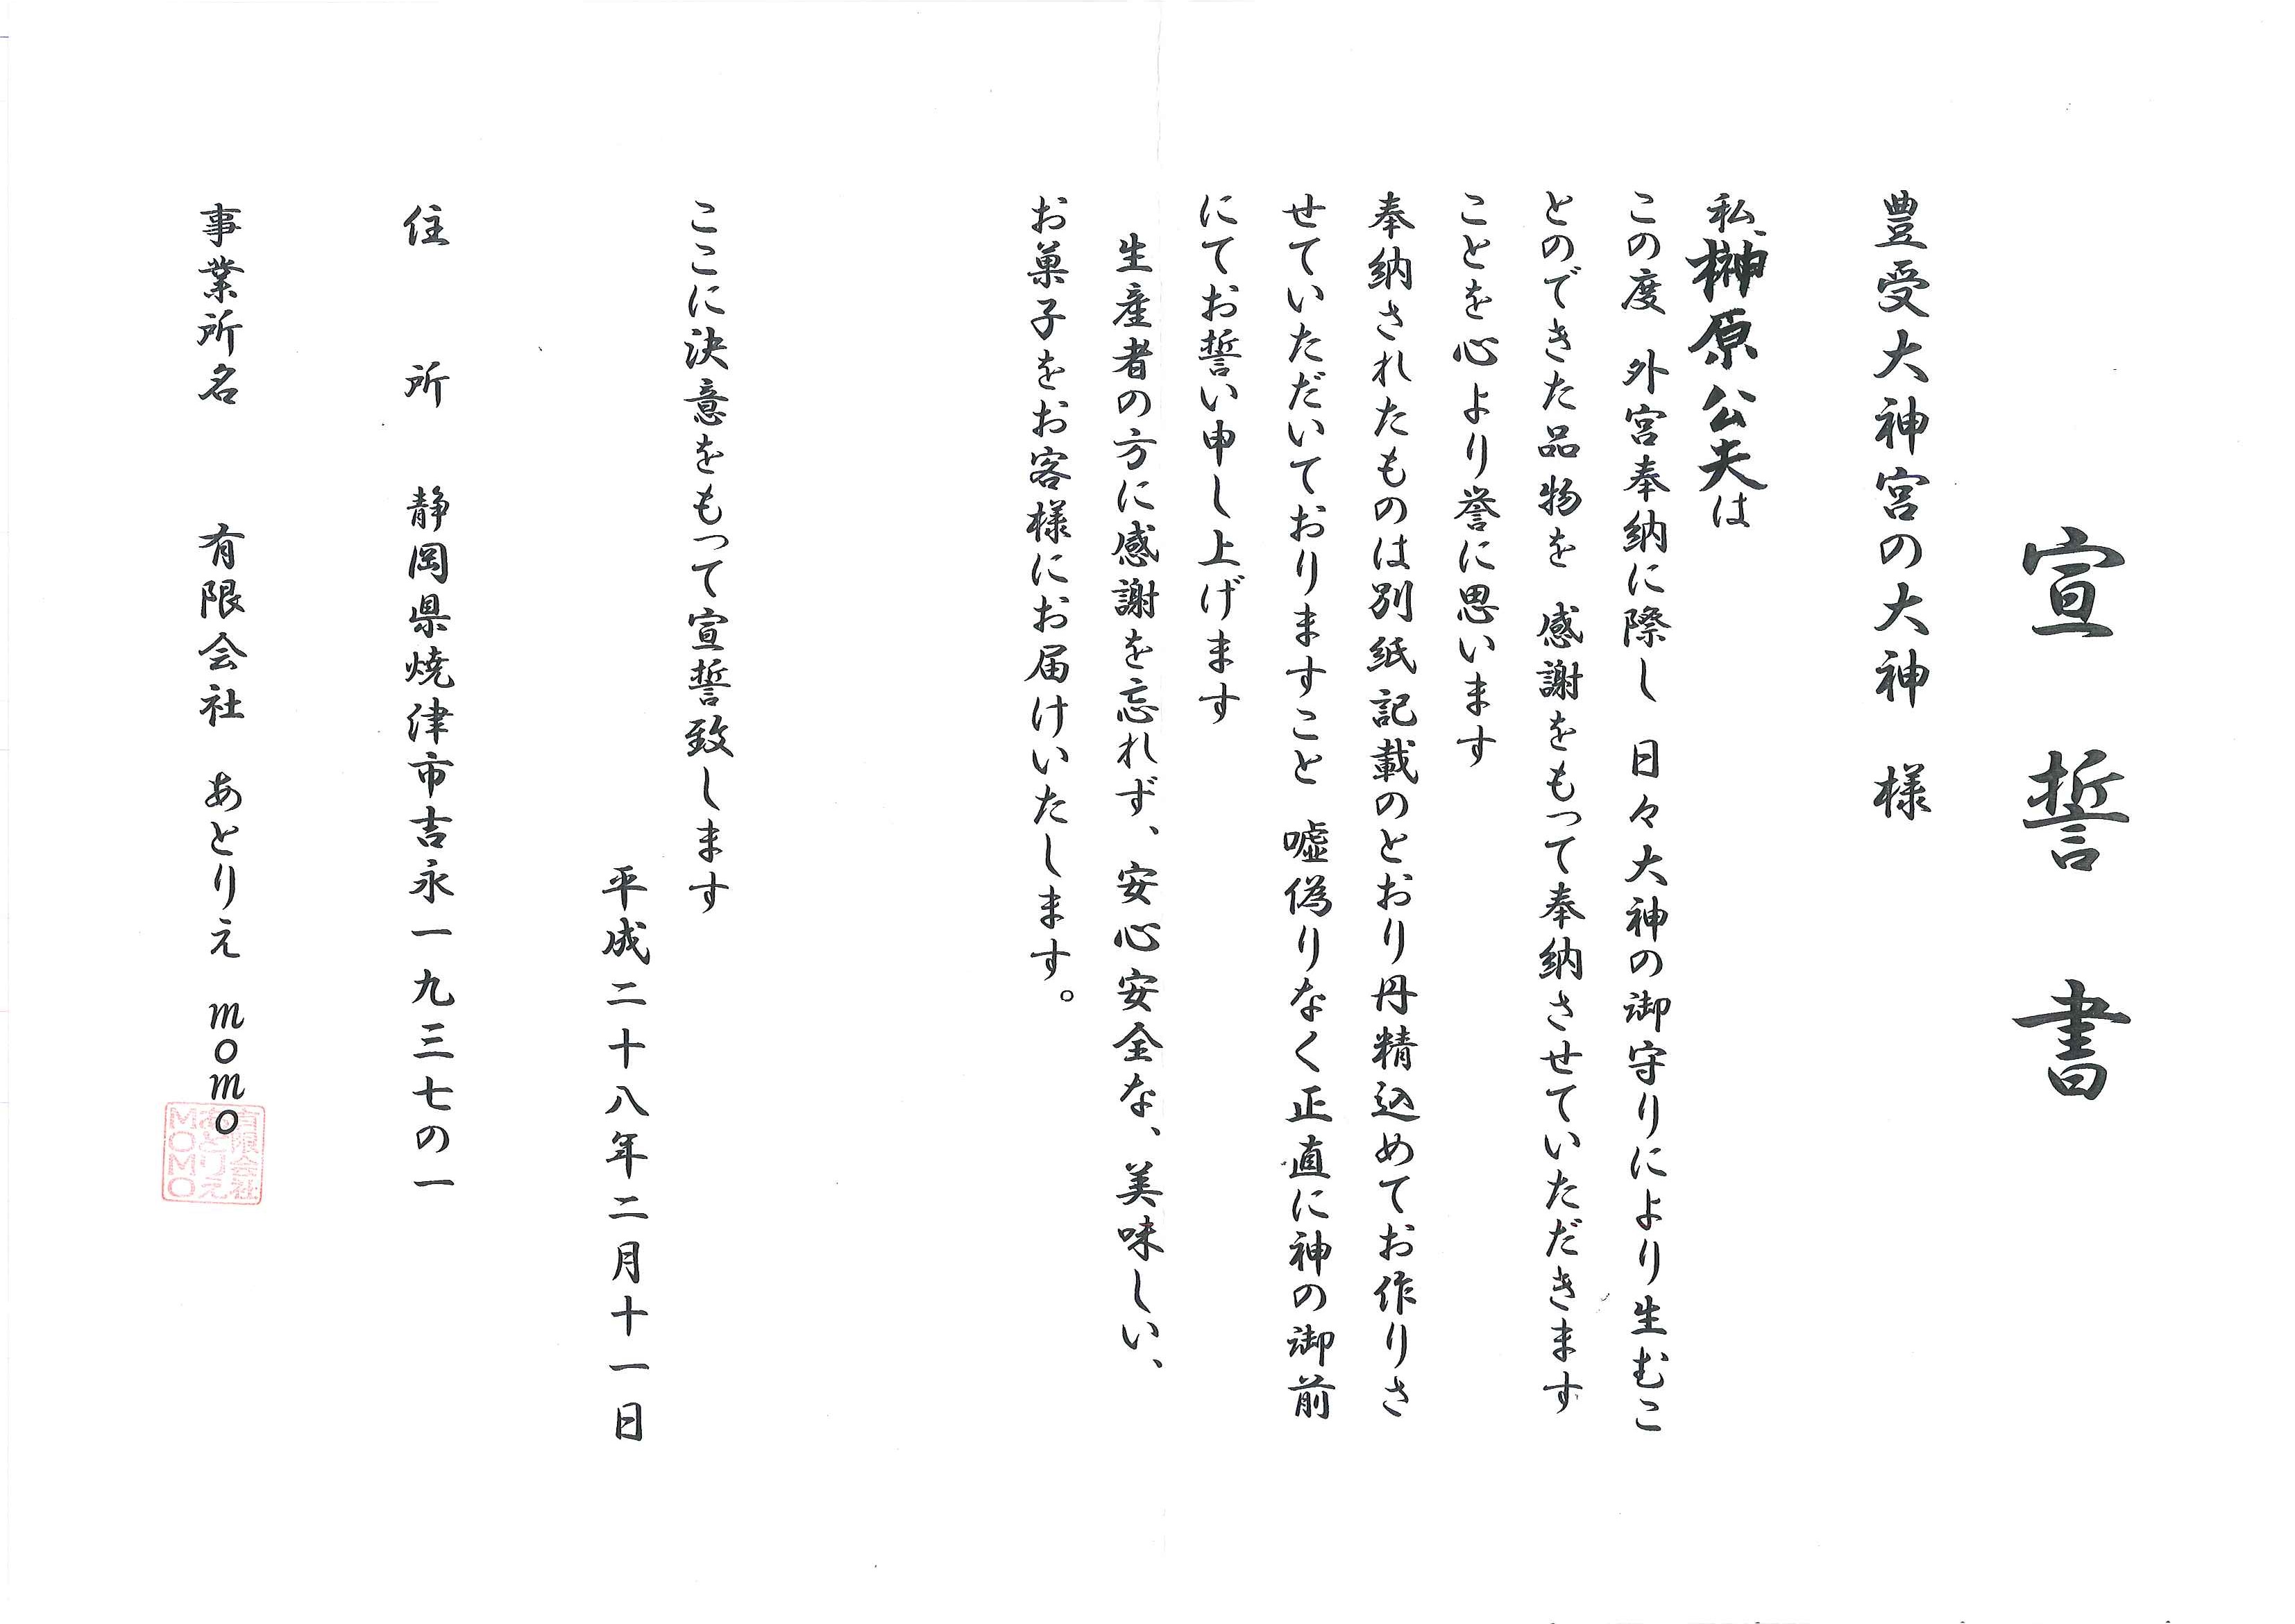 宣誓書
豊受大神宮の大神 様
私、榊原公夫は
この度 外宮奉納に際し 日々大神の御守りにより生むこ
とのできた品物を 感謝をもって奉納させていただきます
ことを心より誉に思います
奉納されたものは別紙記載のとおり丹精込めてお作りさ
せていただいておりますこと 嘘偽りなく正直に神の御前
にてお誓い申し上げます
生産者の方に感謝を忘れず、安心安全な、美味しい、
お菓子をお客様にお届けいたします。
ここに決意をもって宣誓致します
平成二十八年二月十一日
住所 静岡県焼津市吉永一九三七の一
事業所名 有限会社 あとりえ momo
有限会社
あとりえ
MOMO